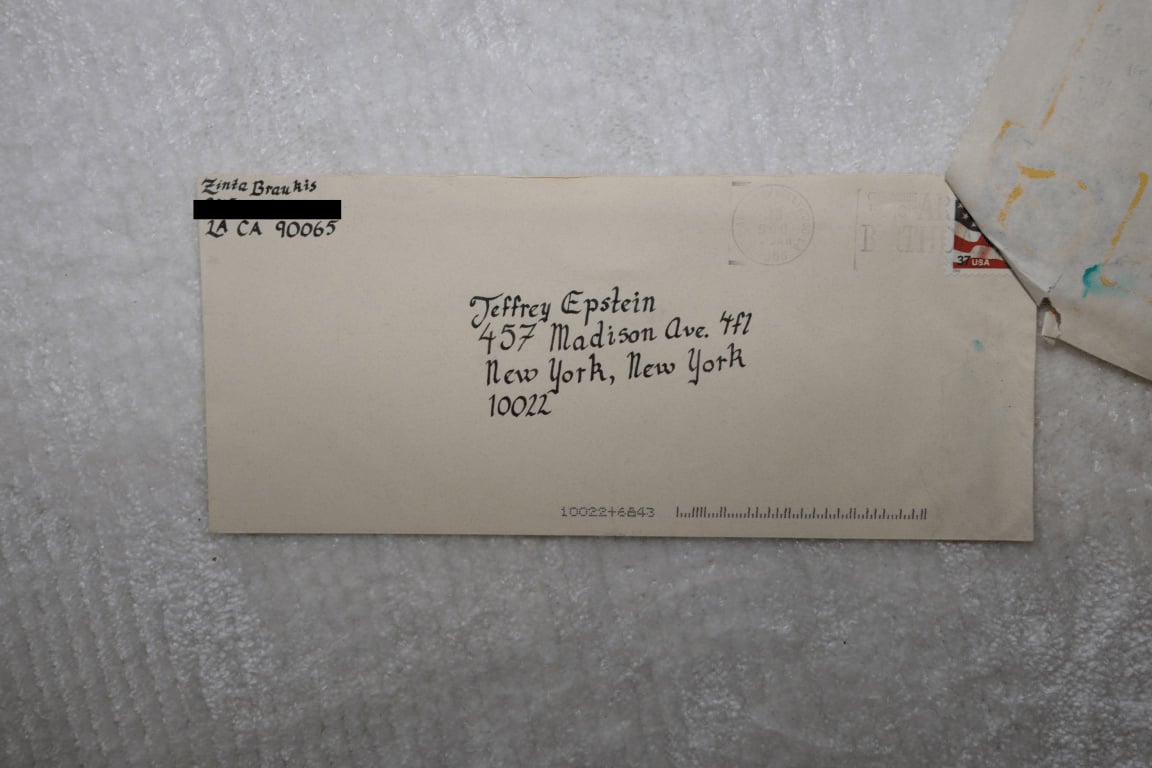 Zinta Braukis
LA CA 90065
37 USA
Jeffrey Epstein
457 Madison Ave. 4fl
New York, New York
10022
10022+6843